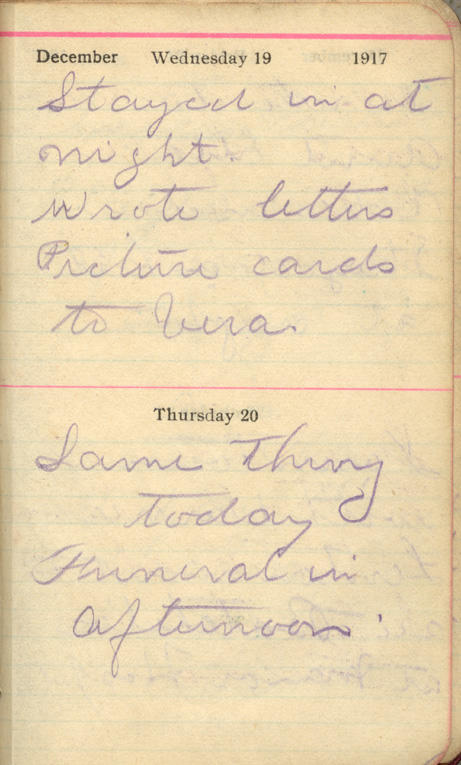 December Wednesday 19 1917
Stayed in at
night.
Wrote letters
Picture cards
to Vera.
Thursday 20
Same thing
today
Funeral in
afternoon.